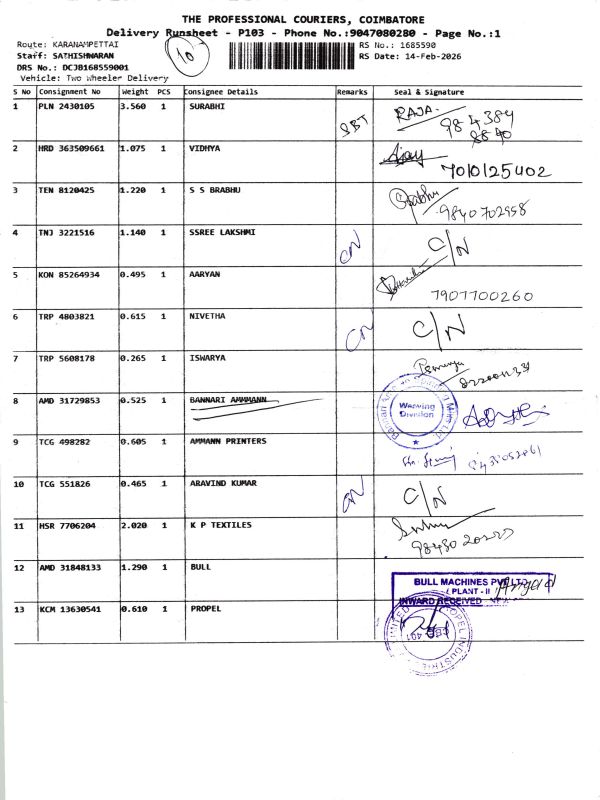 THE PROFESSIONAL COURIERS, COIMBATORE
Delivery Runsheet - P103 - Phone No.:9047080280 - Page No.:1
Route: KARANAMPETTAI
Staff: SATHISHNARAN
DRS No.: DCJB168559001
Vehicle: Two Wheeler Delivery
10
RS No.: 1685590
RS Date: 14-Feb-2026
S No Consignment No Weight PCS Consignee Details Remarks Seal & Signature
1 PLN 2430105 3.560 1 SURABHI SBT RAJA. 984384
8840
2 HRD 363509661 1.075 1 VIDHYA Ajay 7010125402
3 TEN 8120425 1.220 1 S S BRABHU Prabhu 9840702958
4 TNJ 3221516 1.140 1 SSREE LAKSHMI CN C/N
5 KON 85264934 0.495 1 AARYAN 7907700260
6 TRP 4803821 0.615 1 NIVETHA CN C/N
7 TRP 5608178 0.265 1 ISWARYA
8 AMD 31729853 0.525 1 BANNARI AMMANN Weaving Division
9 TCG 498282 0.605 1 AMMANN PRINTERS
10 TCG 551826 0.465 1 ARAVIND KUMAR CN C/N
11 HSR 7706204 2.020 1 K P TEXTILES
12 AMD 31848133 1.290 1 BULL BULL MACHINES PVT LTD
( PLANT - II
INWARD RECEIVED
13 KCM 13630541 0.610 1 PROPEL